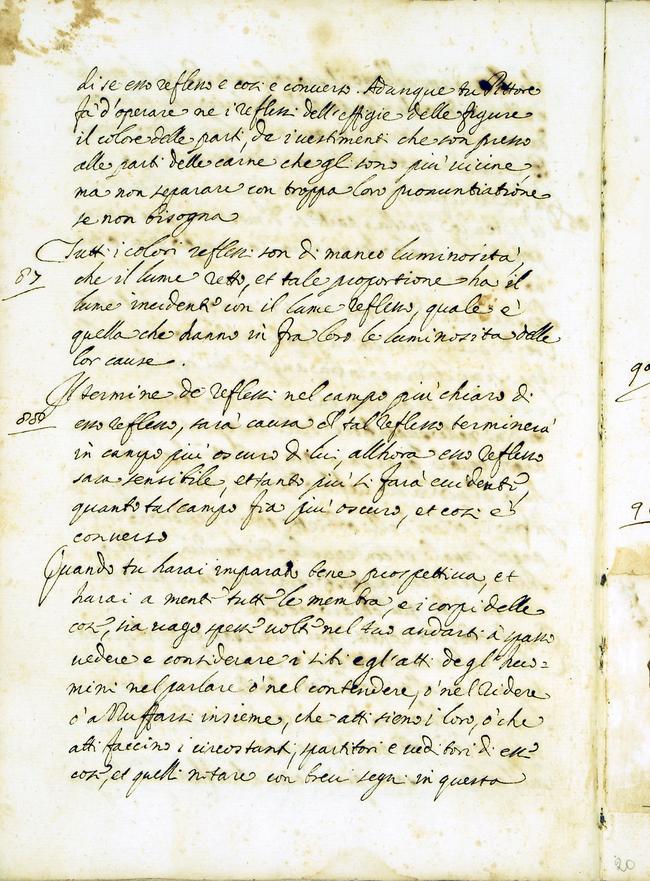 di se esso reflesso e cosi e converso. Adunque tu Pittore
fa d'operare ne i reflessi dell'effigie delle figure
il colore delle parti, de i vestimenti che son presso
alle parti delle carne che gli sono più vicine,
ma non separare con troppa loro pronuntiatione
se non bisogna
Tutti i colori reflessi son di manco luminosità,
87
che il lume retto, et tale proportione ha il
lume incidente con il lume reflesso, quale è
quella che hanno in fra loro le luminosita delle
lor cause.
Il termine de reflessi nel campo più chiaro di
88
esso reflesso, sarà causa ch' tal reflesso terminerà
in campo più oscuro di lui, allhora esso reflesso
sara sensibile, et tanto più si farà evidente,
quanto tal campo fia più oscuro, et cosi è
converso
Quando tu harai imparato bene prospettiva, et
harai a mente tutte le membra, e i corpi delle
cose, sia vago spesse volte nel tuo andarti à spasso
vedere e considerare i siti e gl'atti de gl'huo=
mini nel parlare ò nel contendere, ò nel ridere
ò azzuffarsi insieme, che atti sieno i loro, ò che
atti faccino i circostanti, spartitori e veditori di esse
cose, et quelli notare con brevi segni in questa
90
9
20